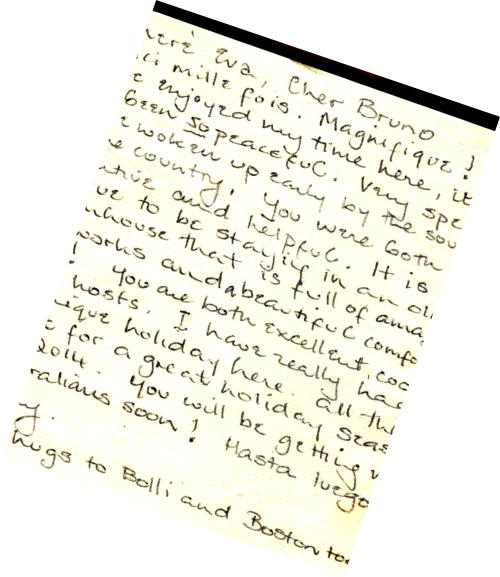 Eva, Cher Bruno
mille fois. Magnifique!
enjoyed my time here, it
been so peaceful. Very spe
woken up early by the sou
country. You were both
and helpful. It is
to be staying in an ol
house that is full of ama
works and a beautiful comfo
! You are both excellent coo
hosts. I have really had
ique holiday here. All the
for a great holiday seas
2014. You will be getting
ralians soon! Hasta luego
y.
hugs to Bolli and Boston too